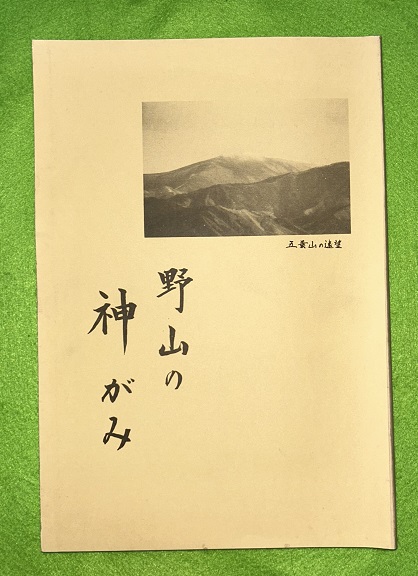 五葉山の遠望
野山の
神がみ